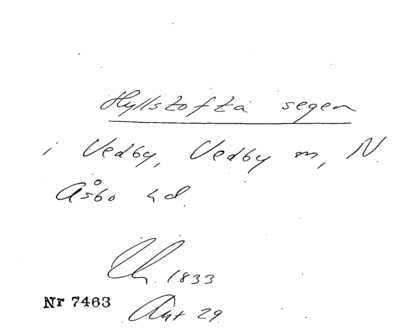 Hyllstofta segen
i Vedby, Vedby m, N
Åsbo hd.
1833
Nr 7463
Akt 29